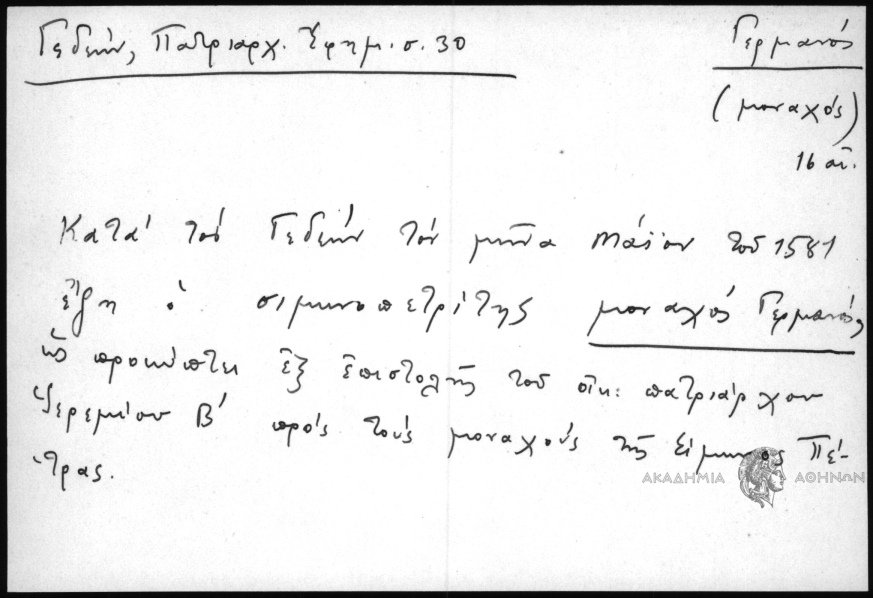 Γεδεών, Πατριαρχ. Ἐφημ. σ. 30
Γερμανός
(μοναχός)
16 αἰ.
Κατά τόν Γεδεών τόν μῆνα Μάϊον τοῦ 1581
ἔζη ὁ σιμωνοπετρίτης μοναχός Γερμανός,
ὡς προκύπτει ἐξ ἐπιστολῆς τοῦ οἰκ. πατριάρχου
Ἱερεμίου Β' πρός τούς μοναχούς τῆς Σίμωνος Πέ-
τρας.
ΑΚΑΔΗΜΙΑ ΑΘΗΝΩΝ